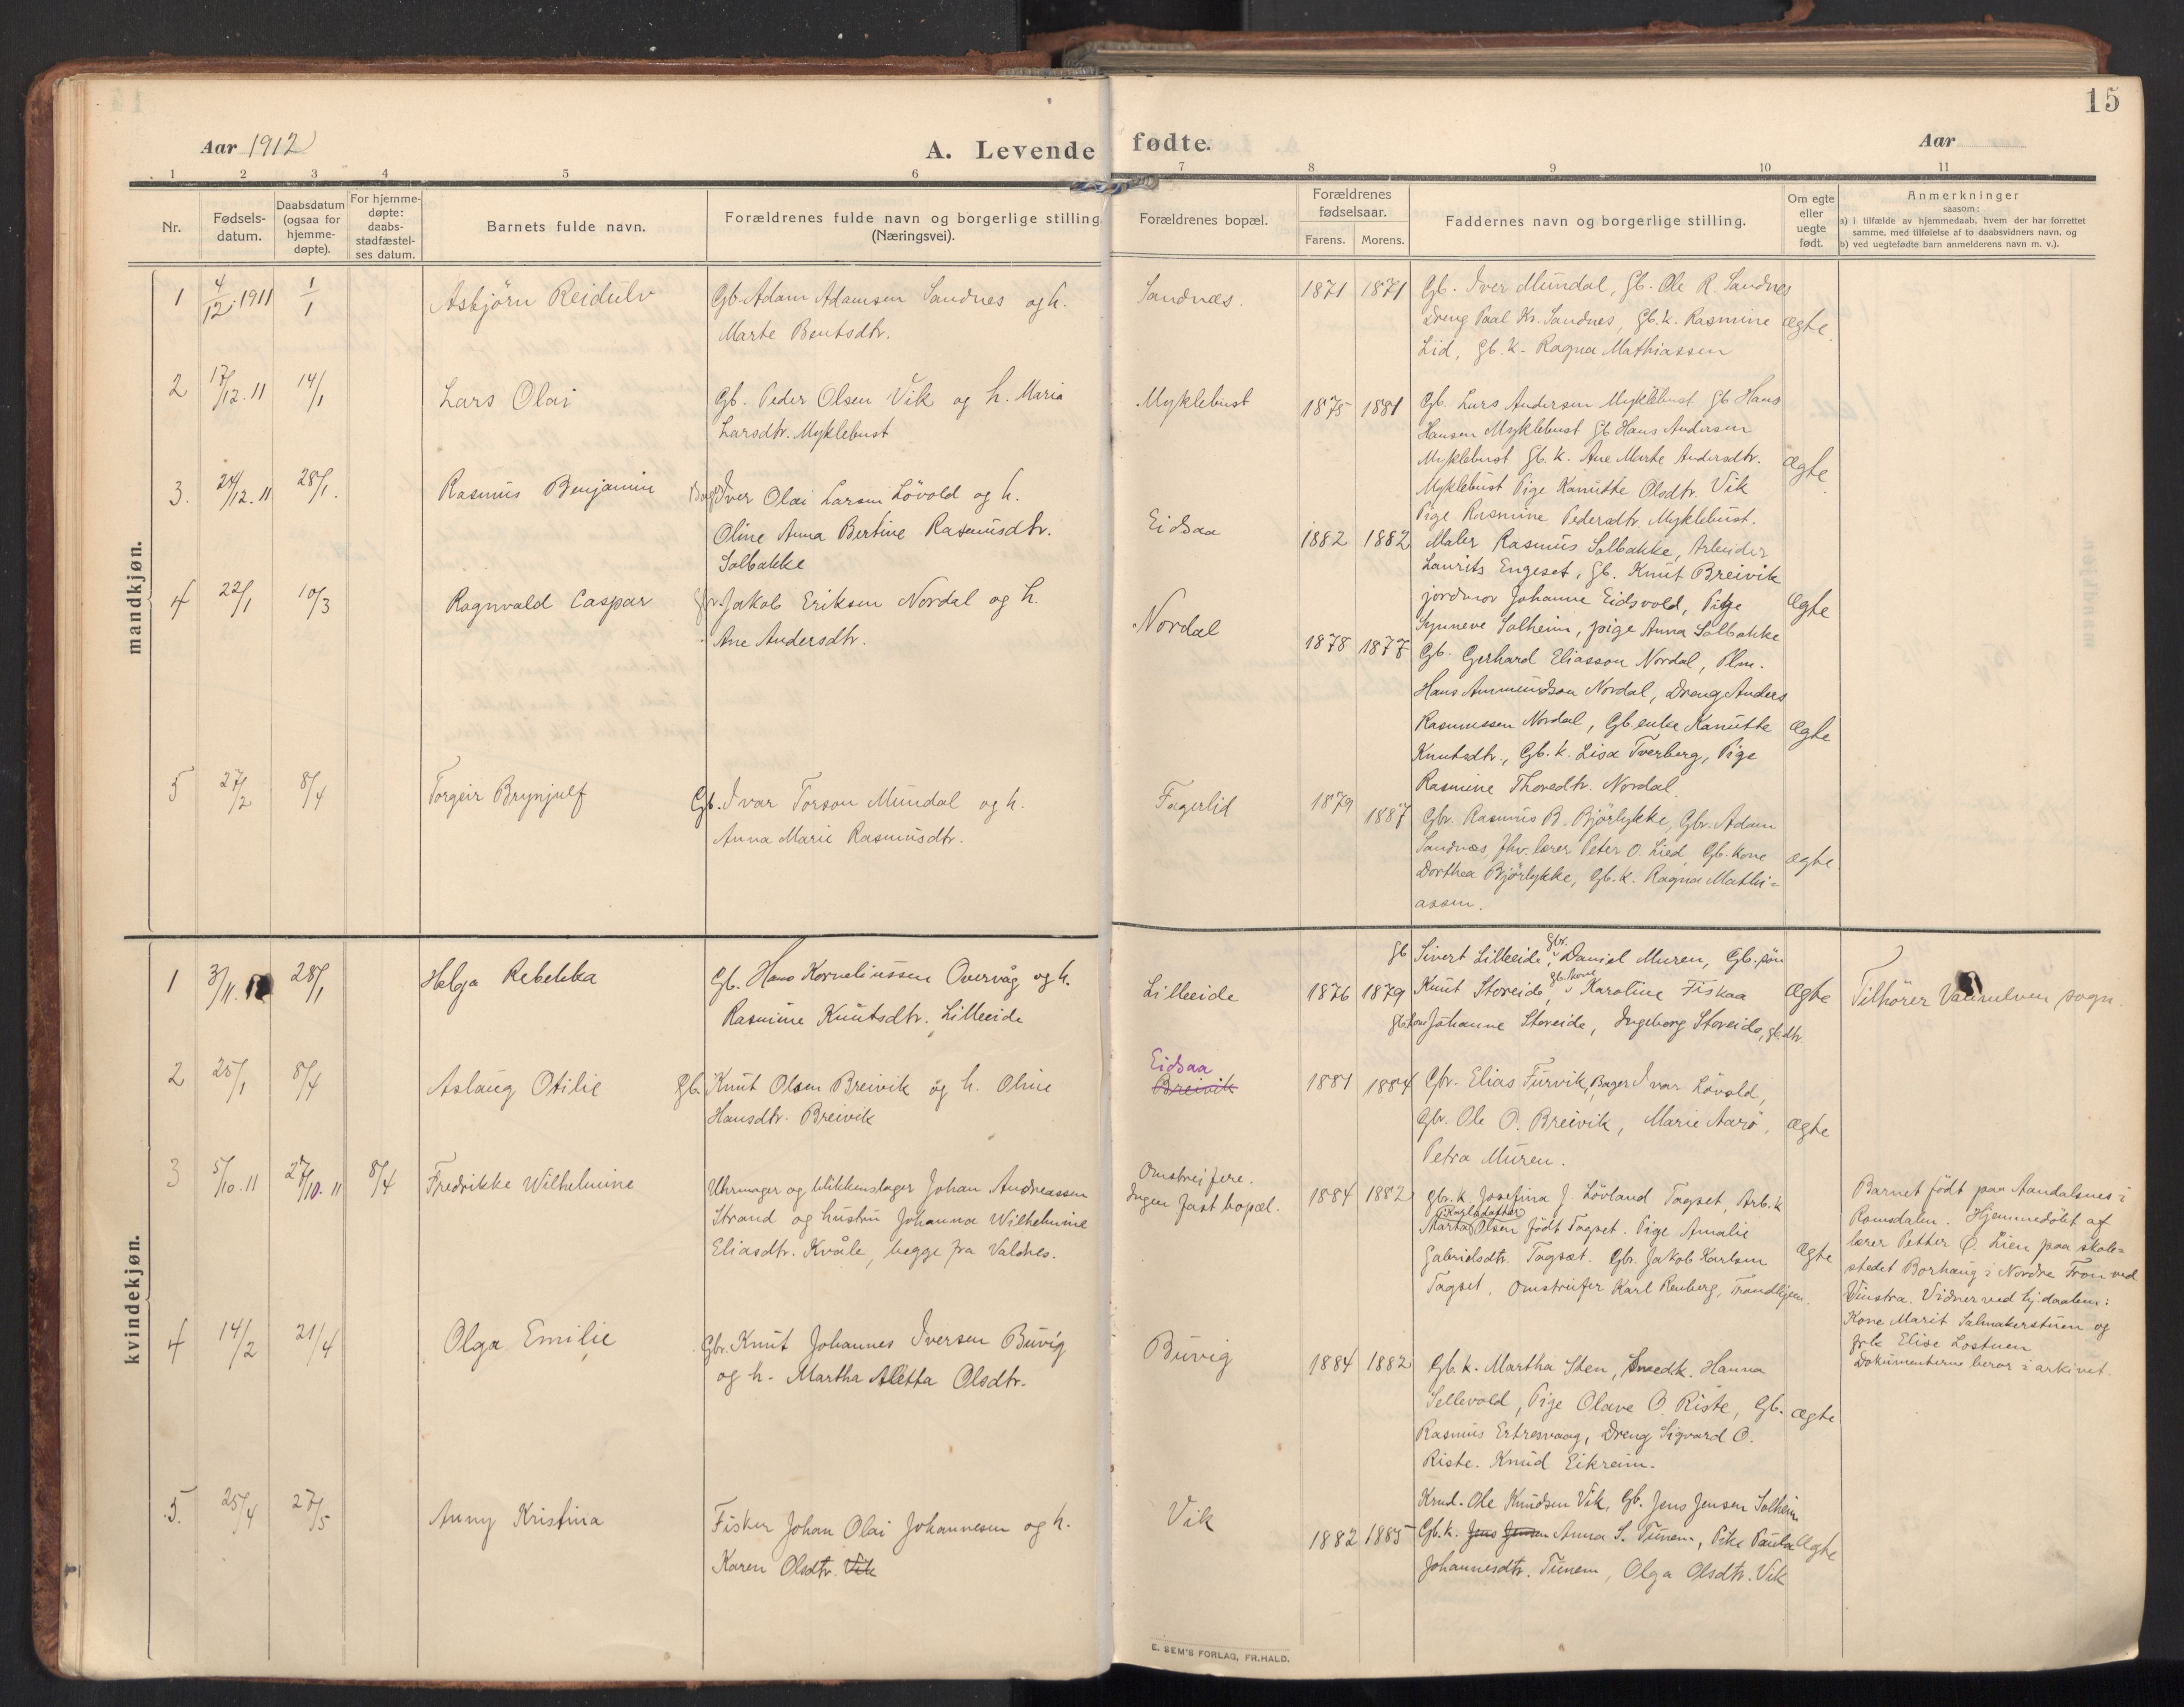 15
Aar 1912
A. Levende fødte.
Aar
1 2 3 4 5 6 7 8 9 10 11
Nr.
Fødsels-
datum.
Daabsdatum
(ogsaa for
hjemme-
døpte).
For hjemme-
døpte:
daabs-
stadfæstel-
ses datum.
Barnets fulde navn.
Forældrenes fulde navn og borgerlige stilling
(Næringsvei).
Forældrenes bopæl.
Forældrenes
fødselsaar.
Farens. Morens.
Faddernes navn og borgerlige stilling.
Om egte
eller
uegte
født.
Anmerkninger
saasom:
a) i tilfælde av hjemmedaab, hvem der har forrettet
samme, med tilføielse af to daabsvidners navn, og
b) ved uegtefødte barn anmelderens navn m. v.).
mandkjøn.
1 4/12. 1911 1/1 Asbjörn Reidulv
Gb. Adam Adamsen Sandnes og h.
Marte Bentsdtr.
Sandnæs. 1871 1871
Gb. Iver Mundal, Gb. Ole R. Sandnes
Dreng Paal Kr. Sandnes, Gb. k. Rasmine
Lid, Gb. k. Ragna Mathiassen
Ægte.
2 17/12. 11 14/1 Lars Olai
Gb. Peder Olsen Vik og h. Maria
Larsdtr. Myklebust
Myklebust 1875 1881
Gb. Lars Andersen Myklebust Gb Hans
Hansen Myklebust Gb Hans Andersen
Myklebust Gb. k. Ane Marte Andersdtr.
Myklebust Pige Kanutte Olsdtr. Vik
Pige Rasmine Pedersdtr. Myklebust.
Ægte.
3. 24/12. 11 28/1. Rasmus Benjamin
Bager Iver Olai Larsen Lövold og h.
Oline Anna Bertine Rasmusdtr.
Solbakke
Eidsaa 1882 1882
Maler Rasmus Solbakke, Arbeider
Laurits Engeset, Gb. Knut Breivik
jordmor Johanne Eidsvold, Pige
Synneve Solheim, pige Anna Solbakke
Ægte
4 22/1 10/3 Ragnvald Caspar
Gbr. Jakob Eriksen Nordal og h.
Ane Andersdtr.
Nordal 1878 1877
Gb. Gerhard Eliasson Nordal, Plm.
Hans Ammundson Nordal, Dreng Anders
Rasmussen Nordal, Gb. enke Kanutte
Knutsdtr., Gb. k. Lisa Tverberg, Pige
Rasmine Thoredtr. Nordal.
Ægte
5 27/2 8/4 Torgeir Brynjulf
Gb. Ivar Torson Mundal og h.
Anna Marie Rasmusdtr.
Fagerlid 1879 1887
Gbr. Rasmus B. Bjørlykke, Gbr. Adam
Sandnæs, fhv. lærer Peter O. Lied, Gb. kone
Dorthea Bjørlykke, Gb. k. Ragna Mathi=
assen.
Ægte.
kvindekjøn.
1 3/11. 28/1 Helga Rebekka
Gb. Hans Korneliussen Overvåg og h.
Rasmine Knutsdtr. Lilleeide
Lilleeide 1876 1879
Gb Sivert Lilleeide, Gbr. Daniel Muren, Gb. søn
Knut Storeide, Gb. kone Karoline Fiskaa
Gb. kone Johanne Storeide, Ingeborg Storeide, gb. dtr
Ægte
Tilhører Vannelven sogn.
2 25/1 8/4 Aslaug Otilie
Gb. Knut Olsen Breivik og h. Oline
Hansdtr. Breivik
Eidsaa
Breivik
1881 1884
Gbr. Elias Furvik, Bager Ivar Lövold,
Gbr. Ole O. Breivik, Marie Aarö,
Petra Muren.
Ægte
3 5/10. 11 27/10. 11 8/4 Fredrikke Wilhelmine
Uhrmager og blikkenslager Johan Andreassen
Strand og hustru Johanna Wilhelmine
Eliasdtr. Kvåle, begge fra Valdnes.
Omstreifere.
Ingen fast bopæl.
1884 1882
Gbr. k. Josefina J. Lövland Tagset, Arb. k
Karlsdatter
Marta Olsen født Tagset. Pige Amalie
Gabrielsdtr. Tagsæt. Gbr. Jakob Karlsen
Tagset, Omstreifer Karl Renberg, Trondhjem.
Ægte
Barnet født paa Aandalsnes i
Romsdalen. Hjemmedöbt af
lærer Petter O. Lien paa skole=
stedet Borhaug i Nordre Fron ved
Vinstra. Vidner ved hj. daaben:
Kone Marit Salmakerstuen og
frk Elise Lostuen
Dokumenterne beror i arkivet.
4 14/2 21/4 Olga Emilie
Gbr. Knut Johannes Iversen Buvig
og h. Martha Aletta Olsdtr.
Buvig 1884 1882
Gb. k. Martha Sten, Smedk. Hanna
Sellevold, Pige Olave O. Riste, Gb.
Rasmus Ertresvaag, Dreng Sigvard O.
Riste. Knud Eikreim.
Ægte
5. 25/4 27/5 Anny Kristina
Fisker Johan Olai Johannesen og h.
Karen Olsdtr. Vik
Vik 1882 1885
Krud. Ole Knudsen Vik, Gb. Jens Jensen Solheim
Gb. k. Jens Jensen Anna S. Tunem, Pike Paula
Johannesdtr. Tunem, Olga Olsdtr. Vik
Ægte
E. SEM'S FORLAG, FR.HALD.